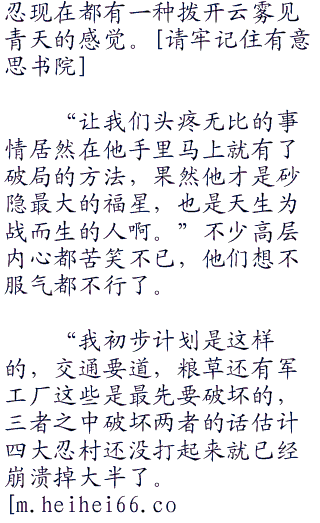 忍现在都有一种拨开云雾见
青天的感觉。[请牢记住有意
思书院]
“让我们头疼无比的事
情居然在他手里马上就有了
破局的方法，果然他才是砂
隐最大的福星，也是天生为
战而生的人啊。”不少高层
内心都苦笑不已，他们想不
服气都不行了。
“我初步计划是这样
的，交通要道，粮草还有军
工厂这些是最先要破坏的，
三者之中破坏两者的话估计
四大忍村还没打起来就已经
崩溃掉大半了。
[m.heihei66.co